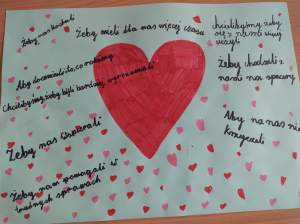 Żeby nas kochali
Żeby mieli dla nas więcej czasu
chcielibyśmy żeby
się z nami więcej
uczyli
Aby doceniali to, co robimy
Żeby chodzili z
nami na spacery
Chcielibyśmy żeby byli bardziej wyrozumiali
Żeby nas wspierali
Aby na nas nie
krzyczeli
Żeby nam pomagali w
trudnych sprawach